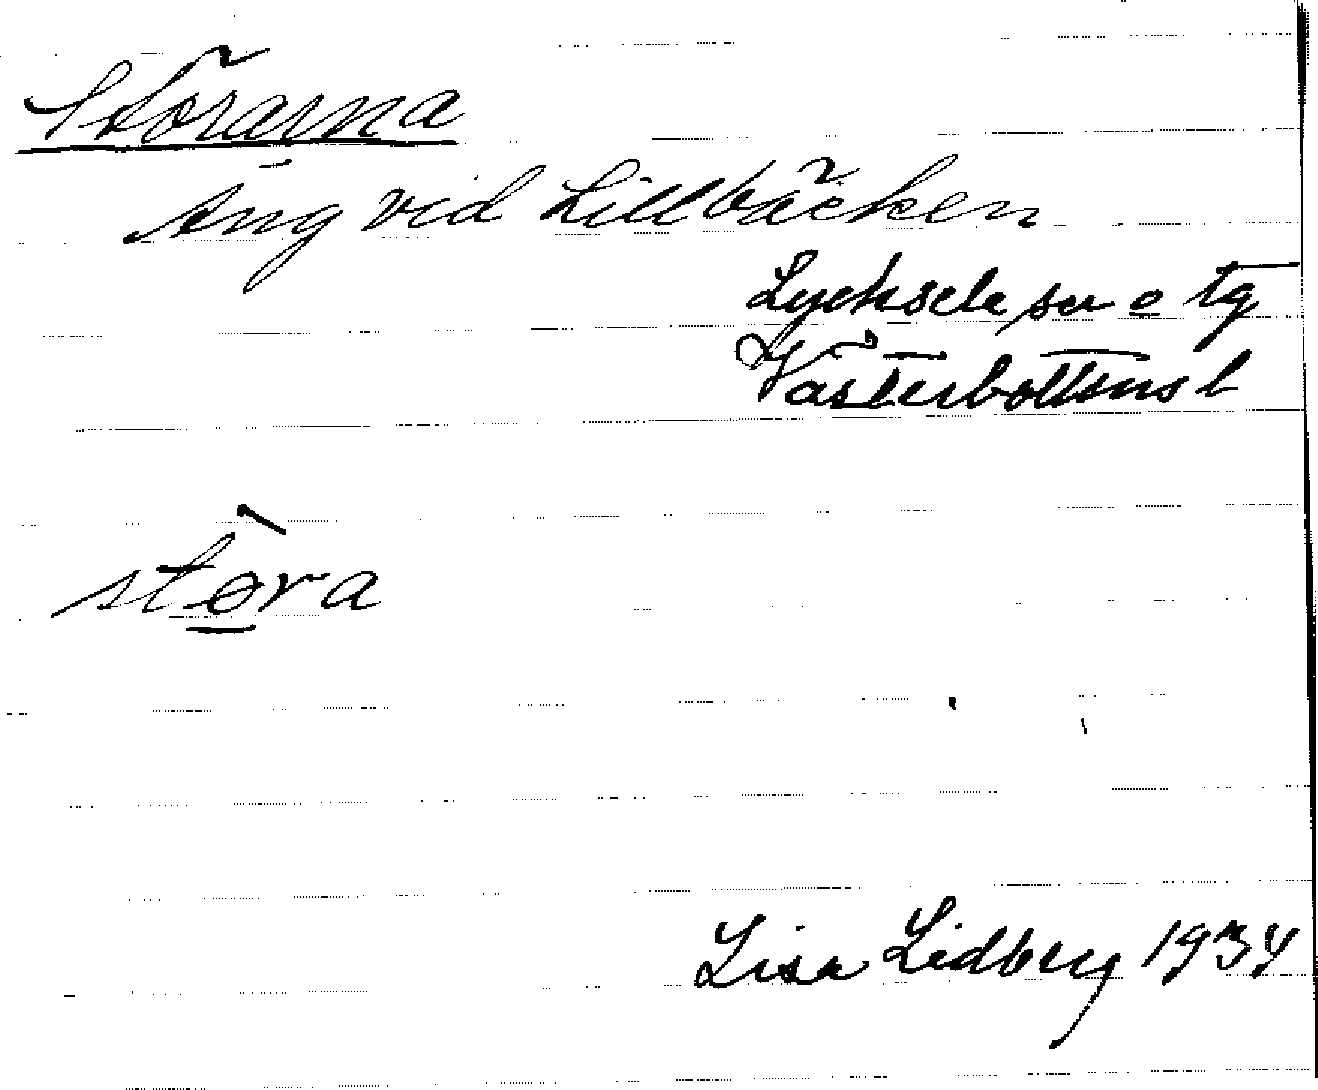 Störarna
äng vid Lillbäcken
Lycksele sn o tg
Västerbottens l
stø̱̀ra
Lisa Lidberg 1934